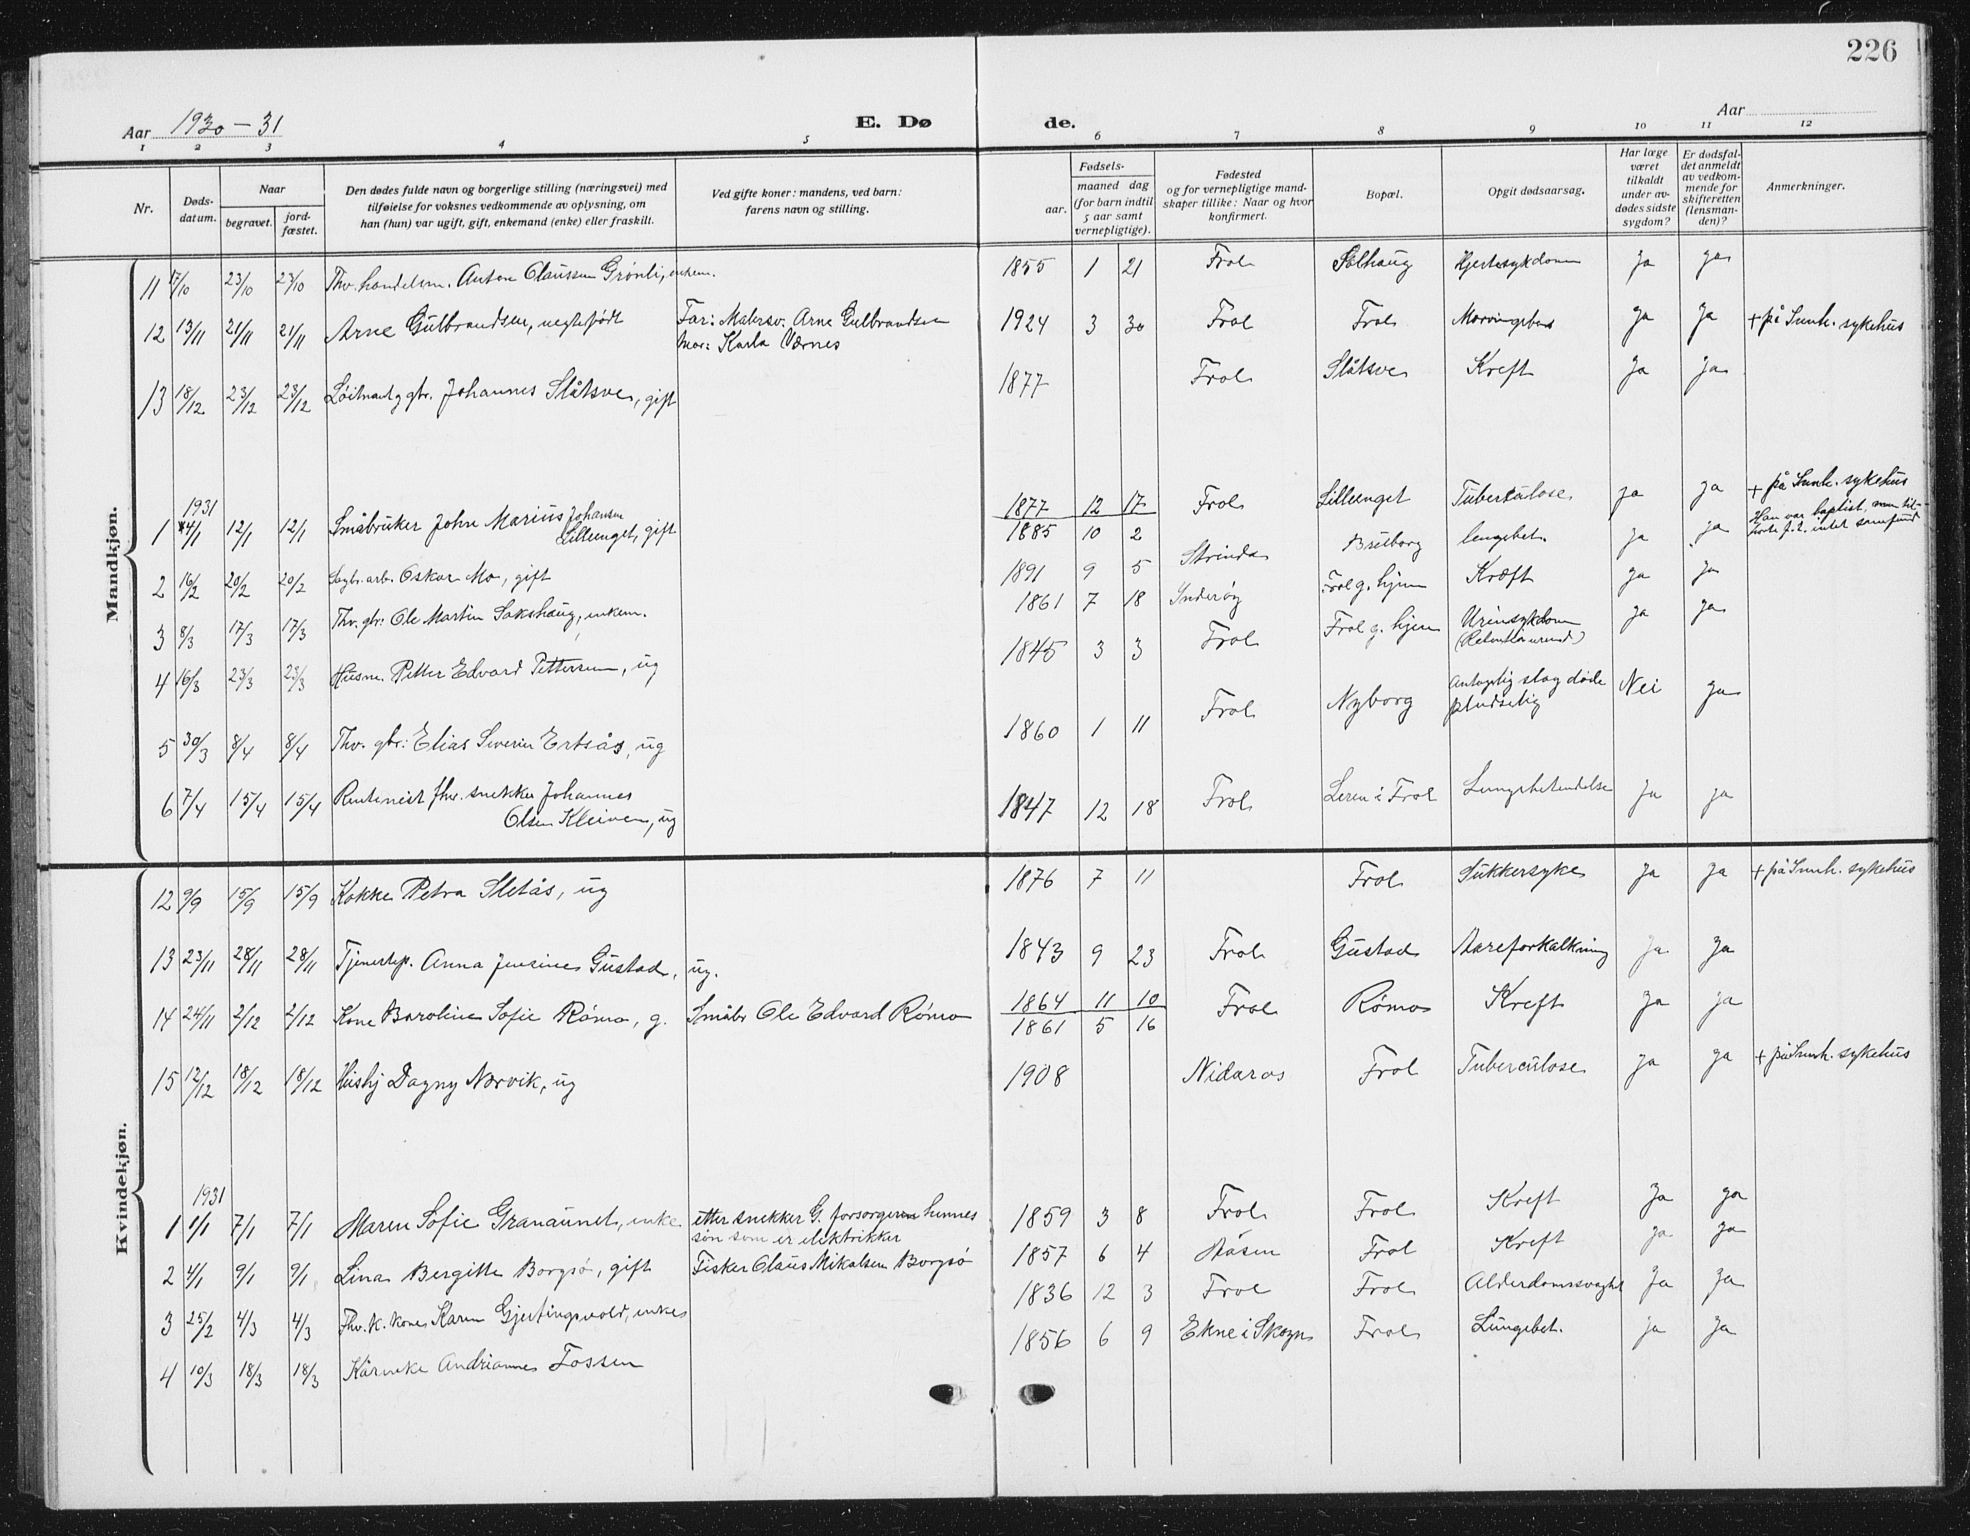 226
Aar 1930-31 E. Døde. Aar
1 2 3 4 5 6 7 8 9 10 11 12
Nr. Døds-datum. Naar begravet. jord-fæstet. Den dødes fulde navn og borgerlige stilling (næringsvei) med tilføielse for voksnes vedkommende av oplysning, om han (hun) var ugift, gift, enkemand (enke) eller fraskilt. Ved gifte koner: mandens, ved barn: farens navn og stilling. Fødsels- aar. maaned dag (for barn indtil 5 aar samt vernepligtige). Fødested og for vernepligtige mandskaper tillike: Naar og hvor konfirmert. Bopæl. Opgit dødsaarsag. Har læge været tilkaldt under avdødes sidste sygdom? Er dødsfaldet anmeldt av vedkommende for skifteretten (lensmanden)? Anmerkninger.
Mandkjøn.
11 17/10 23/10 23/10 Fhv. handelsm. Anton Claussen Grønli, enkem. 1855 1 21 Frol Solhaug Hjertesykdom Ja Ja
12 13/11 21/11 21/11 Arne Gulbrandsen, uegtefødt Far: Malersv. Arne Gulbrandsen 1924 3 30 Frol Frol Ja Ja + på Innh. sykehus
Mor: Karla Værnes
13 18/12 23/12 23/12 Løitnant g gbr. Johannes Slåtsve, gift 1877 Frol Slåtsve Kreft Ja Ja
1931
1 4/1 12/1 12/1 Småbruker John Marius Johansen 1877 12 17 Frol Lilleenget Tuberculose Ja Ja + på Innh. sykehus
Lilleenget, gift Han var baptist, men tilhørte f.t. intet samfund
2 16/2 20/2 20/2 Sagbr.arb. Oskar Mo, gift 1885 10 2
1891 9 5 Strinda lungebet. Ja Ja
3 8/3 17/3 17/3 Fhv. gbr. Ole Martin Sakshaug, enkem. 1861 7 18 Inderøy Frol g. hjem Kræft Ja Ja
4 16/3 23/3 23/3 Husm. Petter Edvard Pettersen, ug 1845 3 3 Frol Frol g. hjem Urinsykdom Ja Ja
5 30/3 8/4 8/4 Fhv. gbr. Elias Severin Ertsås, ug 1860 1 11 Frol Nyborg Antagelig slag døde Nei Ja
pludselig
6 7/4 15/4 15/4 Rentenist fhv. snekker Johannes 1847 12 18 Frol Leren i Frol Lungebetendelse Ja Ja
Olsen Kleiven, ug
Kvindekjøn.
12 9/9 15/9 15/9 Kokke Petra Sletås, ug 1876 7 11 Frol Sukkersyke Ja Ja + på Innh. sykehus
13 23/11 28/11 28/11 Tjenestep. Anna Jensine Gustad, ug. 1843 9 23 Frol Gustad Aareforkalkning Ja Ja
14 24/11 2/12 2/12 Kone Baroline Sofie Rømo, g. Småbr Ole Edvard Rømo 1864 11 10 Frol Rømo Kreft Ja Ja
1861 5 16
15 12/12 18/12 18/12 Hushj Dagny Nervik, ug 1908 Nidaros Frol Tuberculose Ja Ja + på Innh. sykehus
1931
1 1/1 7/1 7/1 Maren Sofie Granaunet, enke etter snekker G. forsørgeren hennes 1859 3 8 Frol Frol Kreft Ja Ja
søn som er elektrikker
2 4/1 9/1 9/1 Lina Bergitte Borgsø, gift Fisker Claus Mikalsen Borgsø 1857 6 4 Åsen Frol Kreft Ja Ja
3 25/2 4/3 4/3 Fhv. K. kone Karen Gjertingsvold, enke 1836 12 3 Frol Frol Alderdomssvaghet Ja Ja
4 10/3 18/3 18/3 Kårenke Andrianne Fossen 1856 6 9 Ekne i Skogn Frol Lungebet. Ja Ja